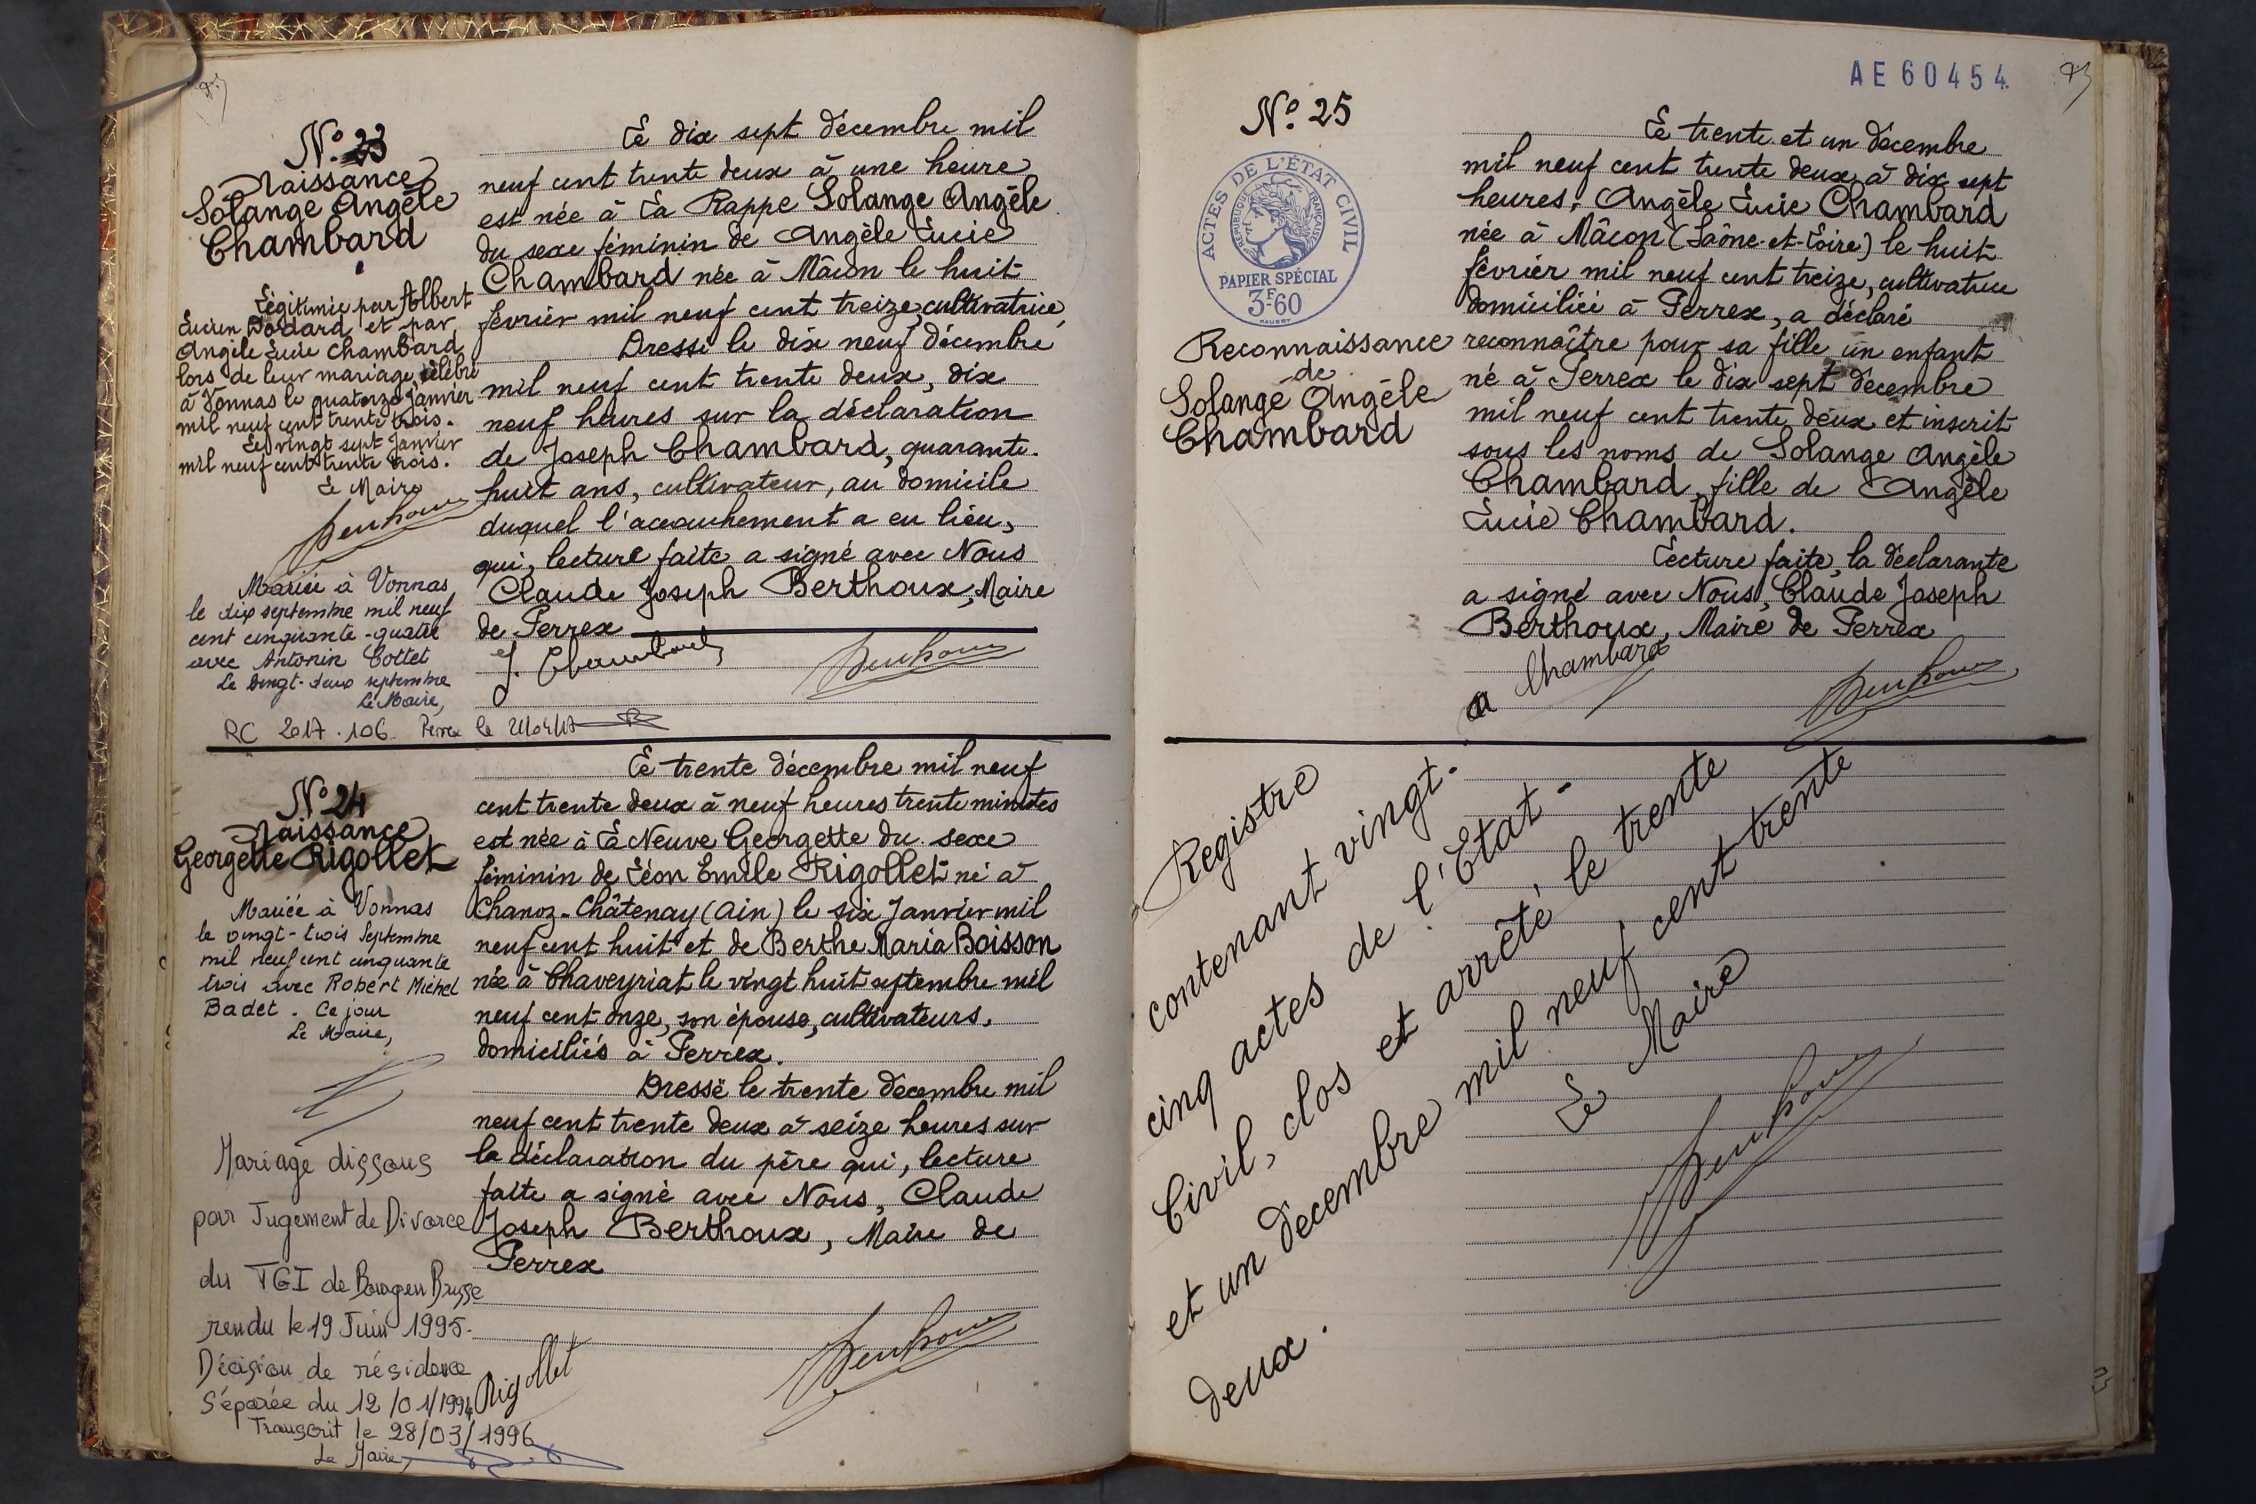 N° 23
Naissance
Solange Angèle
Chambard
Légitimée par Albert
Lucien Dodard et par
Angèle Lucie Chambard
lors de leur mariage, célébré
à Vonnas le quatorze Janvier
mil neuf cent trente trois.
Le vingt sept Janvier
mil neuf cent trente trois.
Le Maire
Mariée à Vonnas
le dix septembre mil neuf
cent cinquante-quatre
avec Antonin Cottet
Le vingt-deux septembre
Le Maire,
RC 2017.106 Perrex le
Le dix sept décembre mil
neuf cent trente deux à une heure
est née à La Rappe Solange Angèle
du sexe féminin de Angèle Lucie
Chambard née à Mâcon le huit
février mil neuf cent treize, cultivatrice,
Dressé le dix neuf décembre
mil neuf cent trente deux, dix
neuf heures sur la déclaration
de Joseph Chambard, quarante-
huit ans, cultivateur, au domicile
duquel l'accouchement a eu lieu,
qui, lecture faite a signé avec Nous
Claude Joseph Berthoux, Maire
de Perrex
J. Chambard
N° 24
Naissance
Georgette Rigollet
Mariée à Vonnas
le vingt-trois Septembre
mil neuf cent cinquante
trois avec Robert Michel
Badet. Ce jour
Le Maire,
Mariage dissous
par Jugement de Divorce
du TGI de Bourg en Bresse
rendu le 19 Juin 1995.
Décision de résidence
Séparée du 12/01/1994
Transcrit le 28/03/1996
Le Maire,
Le trente décembre mil neuf
cent trente deux à neuf heures trente minutes
est née à La Neuve Georgette du sexe
féminin de Léon Emile Rigollet né à
Chanoz-Châtenay (Ain) le six Janvier mil
neuf cent huit et de Berthe Maria Boisson
née à Chaveyriat le vingt huit septembre mil
neuf cent onze, son épouse, cultivateurs,
domiciliés à Perrex.
Dressé le trente décembre mil
neuf cent trente deux à seize heures sur
la déclaration du père qui, lecture
faite a signé avec Nous, Claude
Joseph Berthoux, Maire de
Perrex
Rigollet
AE 60454
N° 25
ACTES DE L'ÉTAT CIVIL
RÉPUBLIQUE FRANÇAISE
PAPIER SPÉCIAL
3F-60
Reconnaissance
de
Solange Angèle
Chambard
Le trente et un décembre
mil neuf cent trente deux à dix sept
heures, Angèle Lucie Chambard
née à Mâcon (Saône-et-Loire) le huit
février mil neuf cent treize, cultivatrice
domiciliée à Perrex, a déclaré
reconnaître pour sa fille un enfant
né à Perrex le dix sept décembre
mil neuf cent trente deux et inscrit
sous les noms de Solange Angèle
Chambard, fille de Angèle
Lucie Chambard.
Lecture faite, la déclarante
a signé avec Nous, Claude Joseph
Berthoux, Maire de Perrex
a Chambard
Registre
contenant vingt-
cinq actes de l'Etat-
Civil, clos et arrêté le trente
et un décembre mil neuf cent trente
deux.
Le Maire